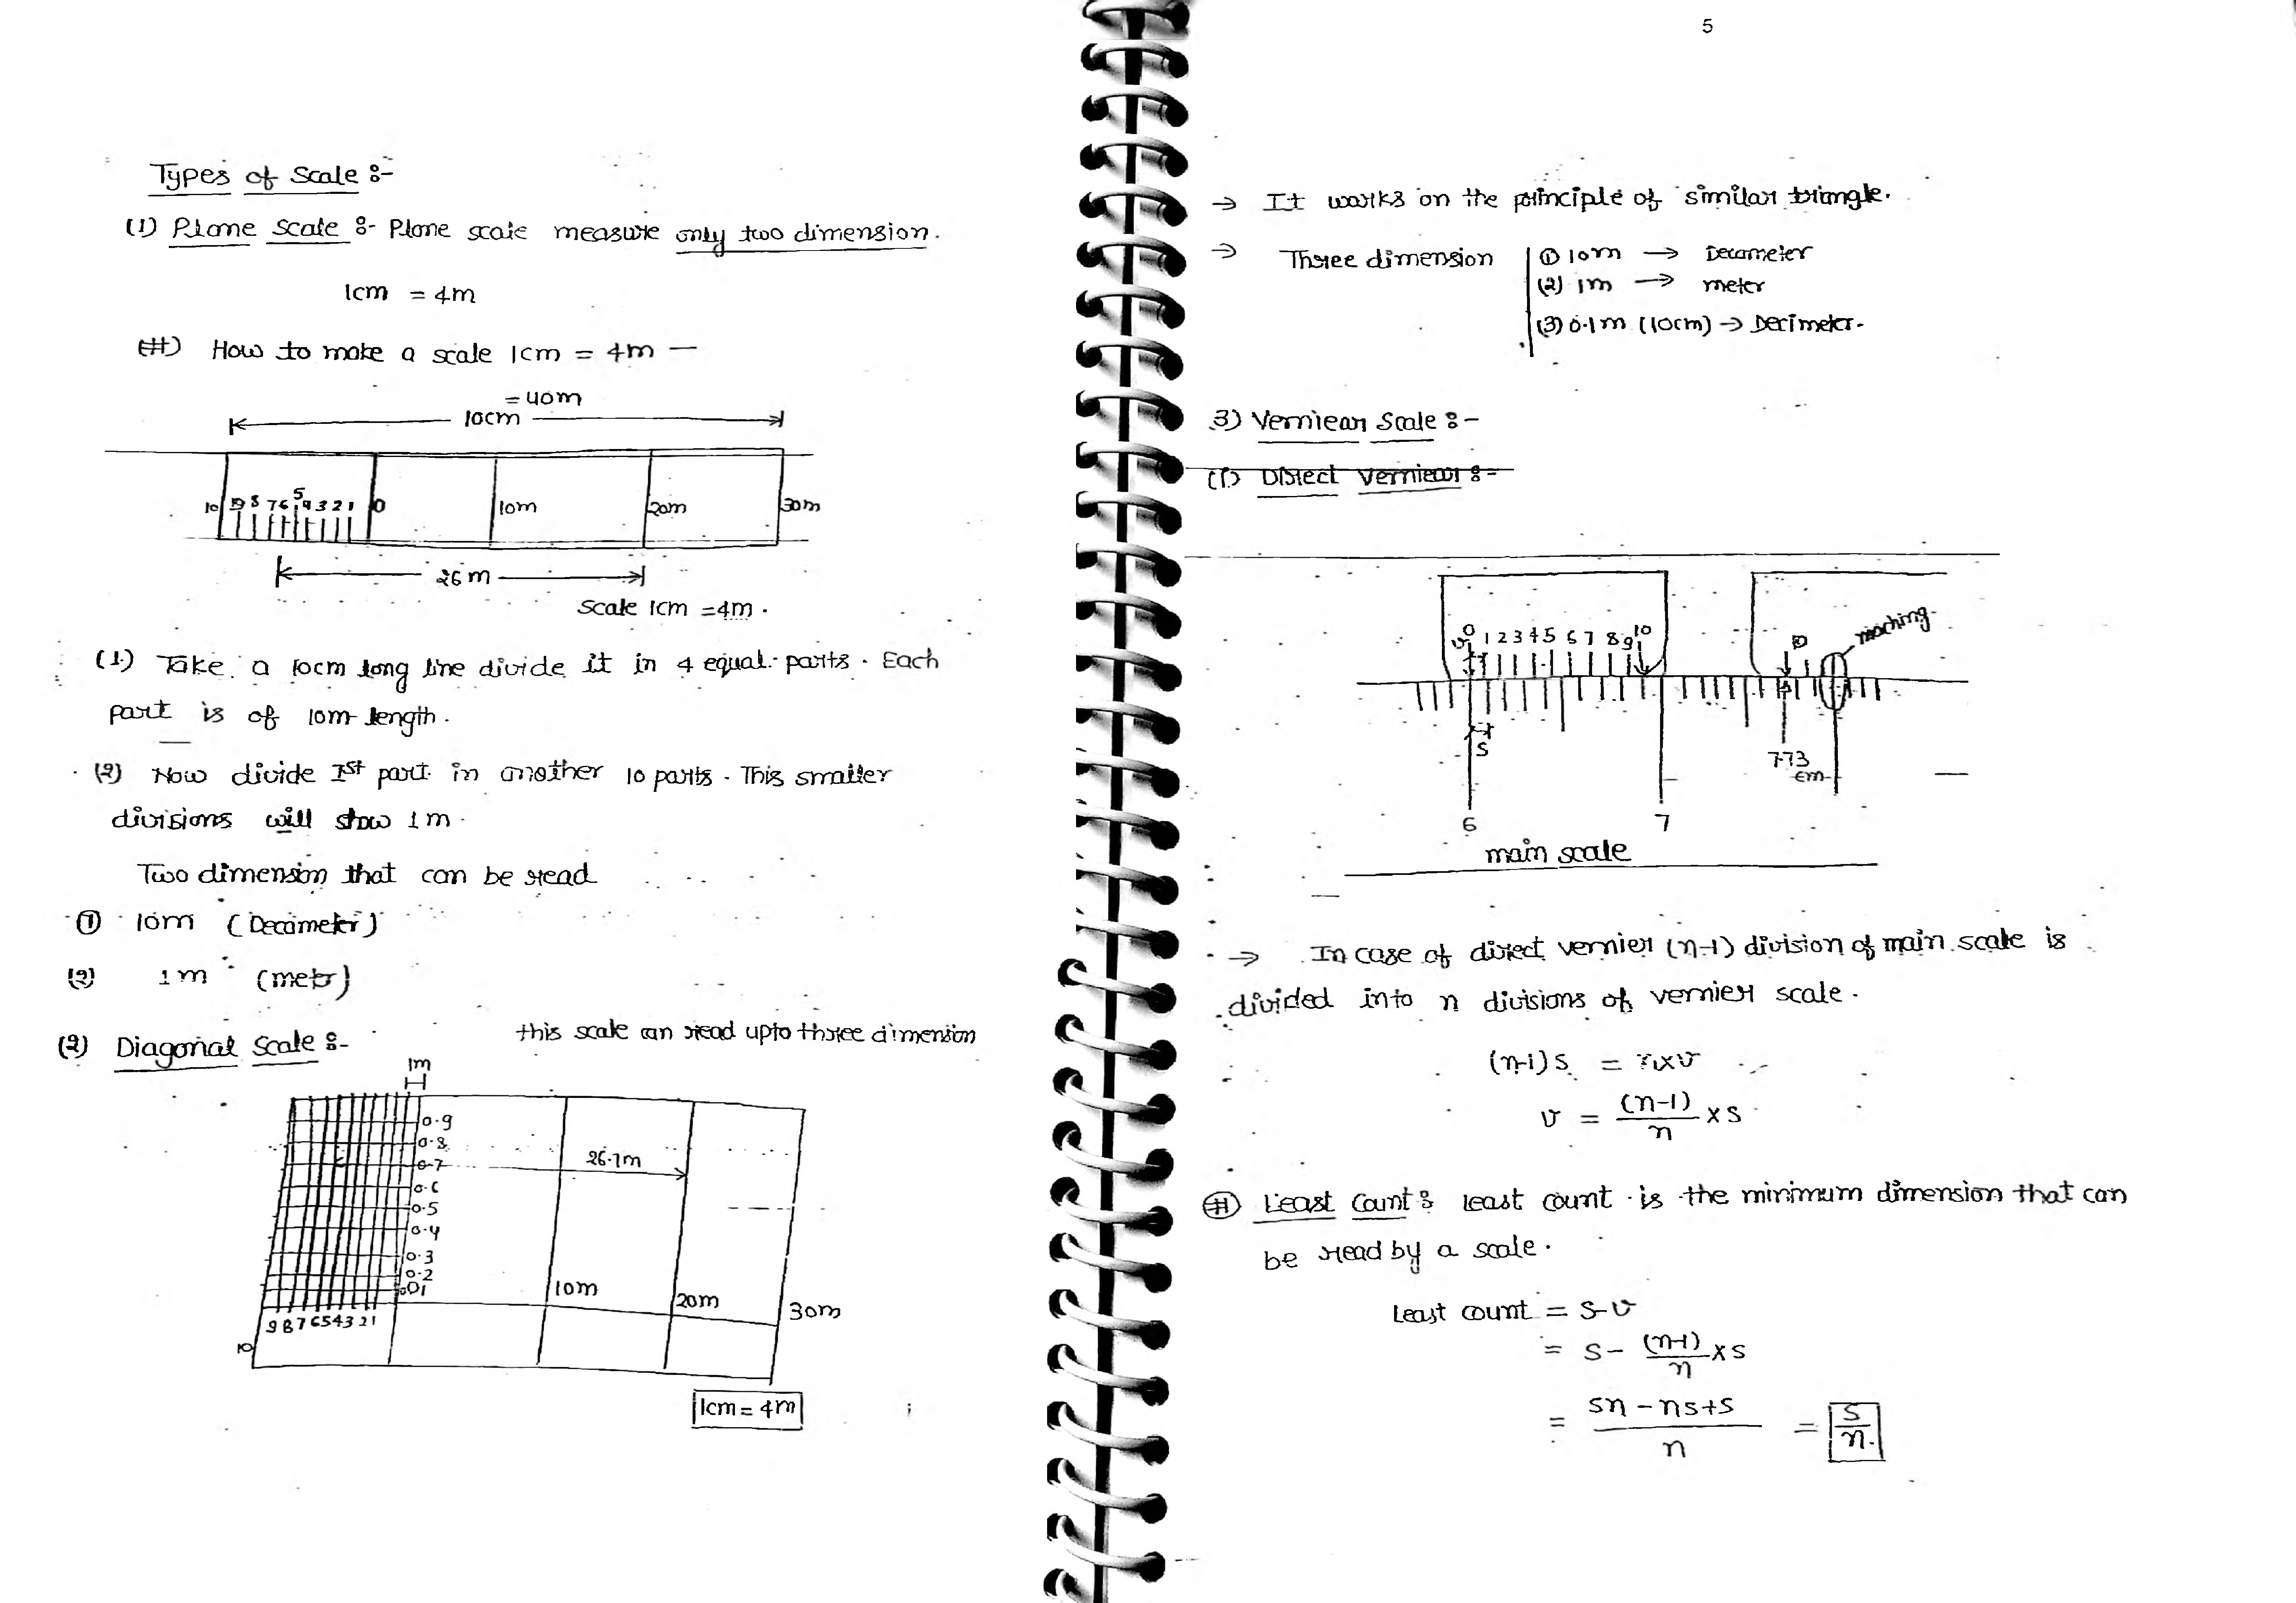 Types of Scale :-
(1) Plane Scale :- Plane scale measure only two dimension.
1cm = 4m
(#) How to make a scale 1cm = 4m —
= 40m
10cm
10 9 8 7 6 5 4 3 2 1 0 10m 20m 30m
26m
Scale 1cm = 4m.
(1.) Take a 10cm long line divide it in 4 equal parts. Each
part is of 10m length.
(2) Now divide Ist part in another 10 parts. This smaller
divisions will show 1m.
Two dimension that can be read
(1) 10m (Decameter)
(2) 1m (metr)
(2) Diagonal Scale :- this scale can read upto three dimension
1m
0.9
0.8
0.7
26.7m
0.6
0.5
0.4
0.3
0.2
0.1
10m 20m 30m
9 8 7 6 5 4 3 2 1
10
1cm = 4m
5
→ It works on the principle of similar triangle.
→ Three dimension
(1) 10m → Decameter
(2) 1m → meter
(3) 0.1m (10cm) → Decimeter.
3) Verniear Scale :-
(1) Direct Verniear :-
0 1 2 3 4 5 6 7 8 9 10
v
0
maching
s
7.73
cm
6 7
main scale
→ In case of direct vernier (n-1) division of main scale is
divided into n divisions of vernier scale.
(n-1) s = n×v
v = (n-1)/n × s
(#) Least Count : least count is the minimum dimension that can
be read by a scale.
Least count = s-v
= s - (n-1)/n × s
= (sn - ns + s)/n = s/n